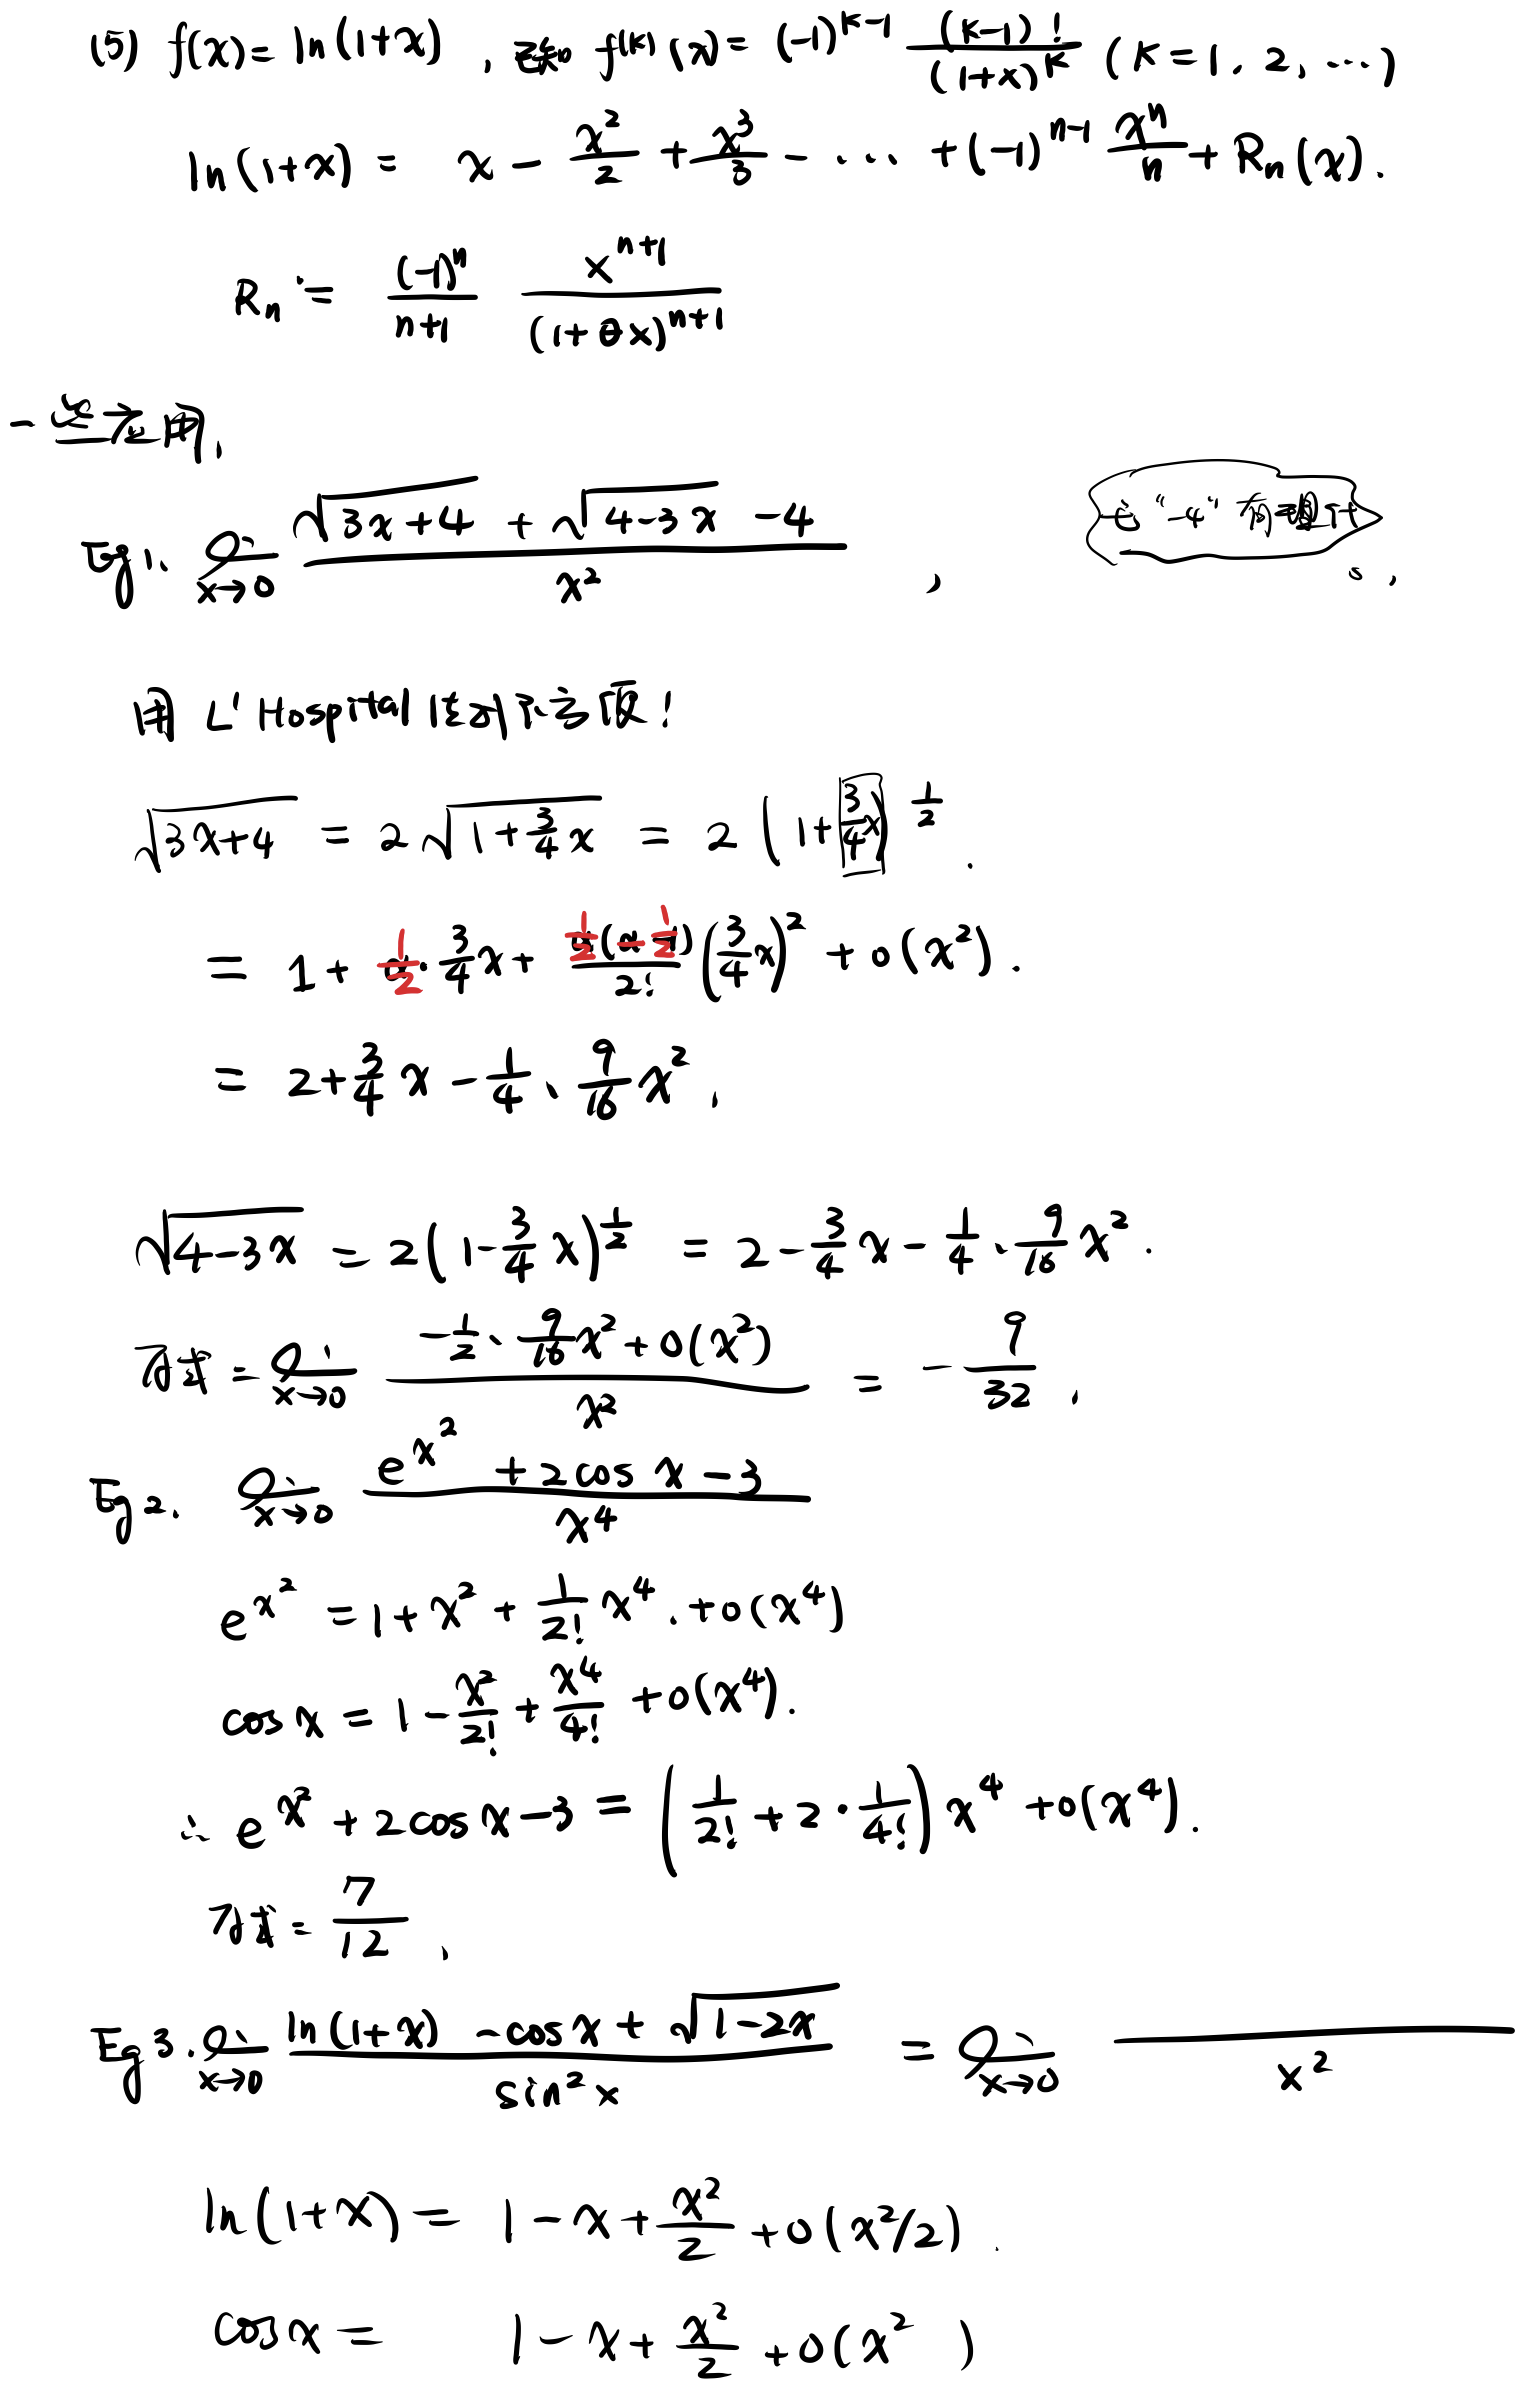 (5) f(x) = ln(1+x) , 已知 f^(k)(x) = (-1)^{k-1} (k-1)!/(1+x)^k (k=1, 2, ...)
ln(1+x) = x - x²/2 + x³/3 - ... + (-1)^{n-1} x^n/n + R_n(x).
R_n = (-1)^n/(n+1) x^{n+1}/(1+θx)^{n+1}
一些应用.
Eg1. lim x→0 (√(3x+4) + √(4-3x) - 4)/x² ,
用 L'Hospital 法则不方便!
√(3x+4) = 2√(1+3/4 x) = 2(1+3/4 x)^{1/2} .
= 1 + 1/2 · 3/4 x + 1/2(-1/2)/2! (3/4 x)² + o(x²) .
= 2 + 3/4 x - 1/4 · 9/16 x² .
√(4-3x) = 2(1-3/4 x)^{1/2} = 2 - 3/4 x - 1/4 · 9/16 x² .
原式 = lim x→0 (-1/2 · 9/16 x² + o(x²))/x² = -9/32 .
Eg2. lim x→0 (e^{x²} + 2cos x - 3)/x⁴
e^{x²} = 1 + x² + 1/2! x⁴ . + o(x⁴)
cos x = 1 - x²/2! + x⁴/4! + o(x⁴).
∴ e^{x²} + 2cos x - 3 = (1/2! + 2 · 1/4!) x⁴ + o(x⁴) .
原式 = 7/12 .
Eg3. lim x→0 (ln(1+x) - cos x + √(1-2x))/sin²x = lim x→0 /x²
ln(1+x) = 1 - x + x²/2 + o(x²/2) .
cos x = 1 - x + x²/2 + o(x² )